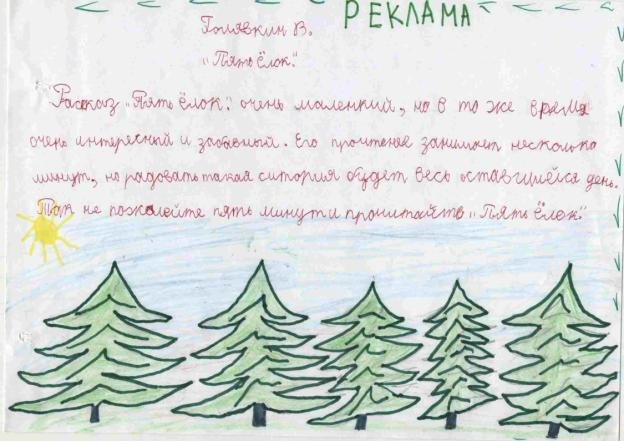 РЕКЛАМА
Голявкин В.
„Пять ёлок."
Рассказ „Пять ёлок." очень маленький, но в то же время
очень интересный и забавный. Его прочтение занимает несколько
минут, но радовать такая ситория будет весь оставшийся день.
Так не пожалейте пять минут и прочитайте „Пять ёлок."